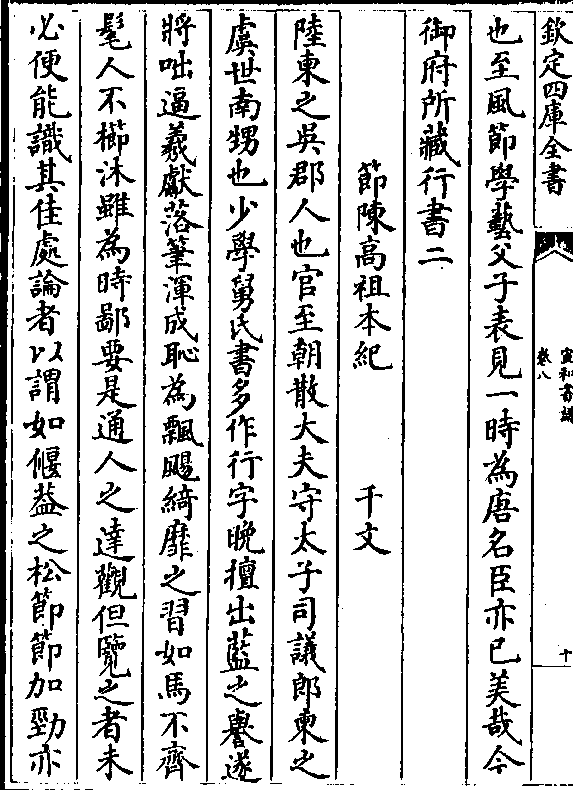 欽定四庫全書
宣和書譜
卷八
十
也至風節學藝父子表見一時為唐名臣亦已美哉今
御府所藏行書二
節陳高祖本紀 千文
陸柬之吳郡人也官至朝散大夫守太子司議郎柬之
虞世南甥也少學舅氏書多作行字晚擅出藍之譽遂
將咄逼羲獻落筆渾成恥為飄颺綺靡之習如馬不齊
髦人不櫛沐雖為時鄙要是通人之達觀但覽之者未
必便能識其佳處論者以謂如偃葢之松節節加勁亦